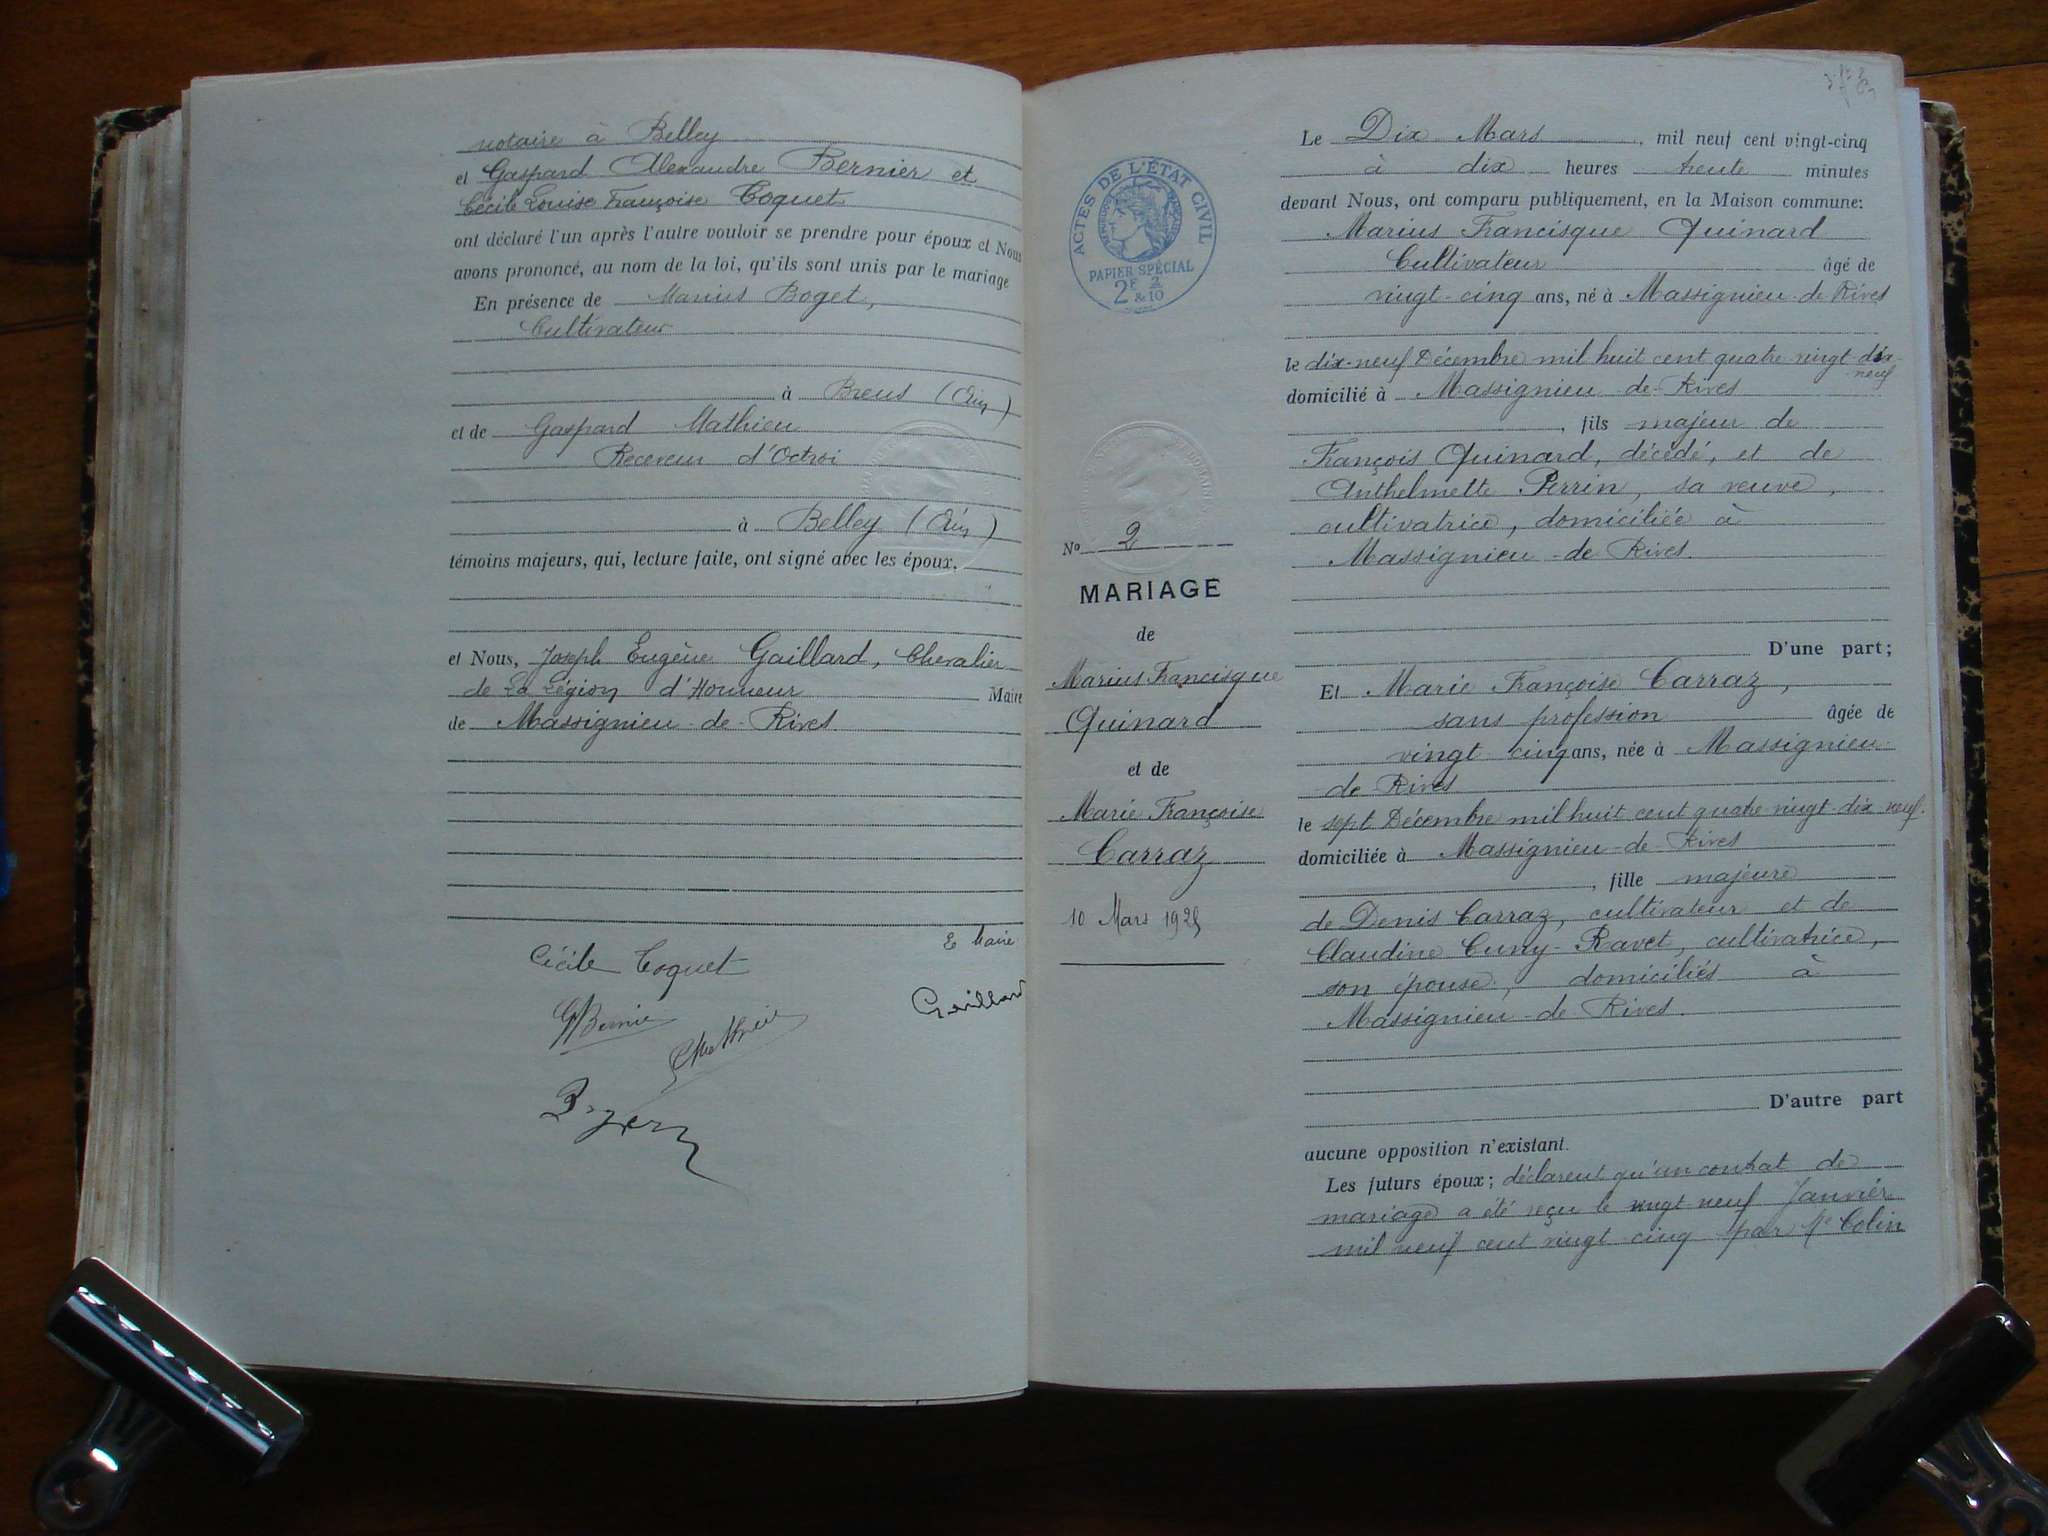 notaire à Belley
et Gaspard Alexandre Bernier et
Cécile Louise Françoise Coquet
ont déclaré l'un après l'autre vouloir se prendre pour époux et Nous
avons prononcé, au nom de la loi, qu'ils sont unis par le mariage
En présence de Marius Boget,
Cultivateur
à Brens (Ain)
et de Gaspard Mathieu
Receveur d'Octroi
à Belley (Ain)
témoins majeurs, qui, lecture faite, ont signé avec les époux,
et Nous, Joseph Eugène Gaillard, Chevalier
de La Légion d'Honneur Maire
de Massignieu-de-Rives
Maire
Cécile Coquet
Gaillard
GBernier
ACTES DE L'ÉTAT CIVIL
PAPIER SPÉCIAL
2F
& 2/10
No 2
MARIAGE
de
Marius Francisque
Quinard
et de
Marie Françoise
Carraz
10 Mars 1925
Le Dix Mars, mil neuf cent vingt-cinq
à dix heures trente minutes
devant Nous, ont comparu publiquement, en la Maison commune:
Marius Francisque Quinard
Cultivateur âgé de
vingt-cinq ans, né à Massignieu-de-Rives
le dix-neuf Décembre mil huit cent quatre vingt-dix-
neuf
domicilié à Massignieu-de-Rives
, fils majeur de
François Quinard, décédé, et de
Anthelmette Perrin, sa veuve,
cultivatrice, domiciliée à
Massignieu-de-Rives.
D'une part;
Et Marie Françoise Carraz,
sans profession âgée de
vingt cinq ans, née à Massignieu-
de Rives
le sept Décembre mil huit cent quatre vingt-dix neuf.
domiciliée à Massignieu-de-Rives
, fille majeure
de Denis Carraz, cultivateur et de
Claudine Cuny-Ravet, cultivatrice,
son épouse, domiciliés à
Massignieu-de-Rives.
D'autre part
aucune opposition n'existant.
Les futurs époux; déclarent qu'un contrat de
mariage a été reçu le vingt neuf Janvier
mil neuf cent vingt-cinq par Me Colin